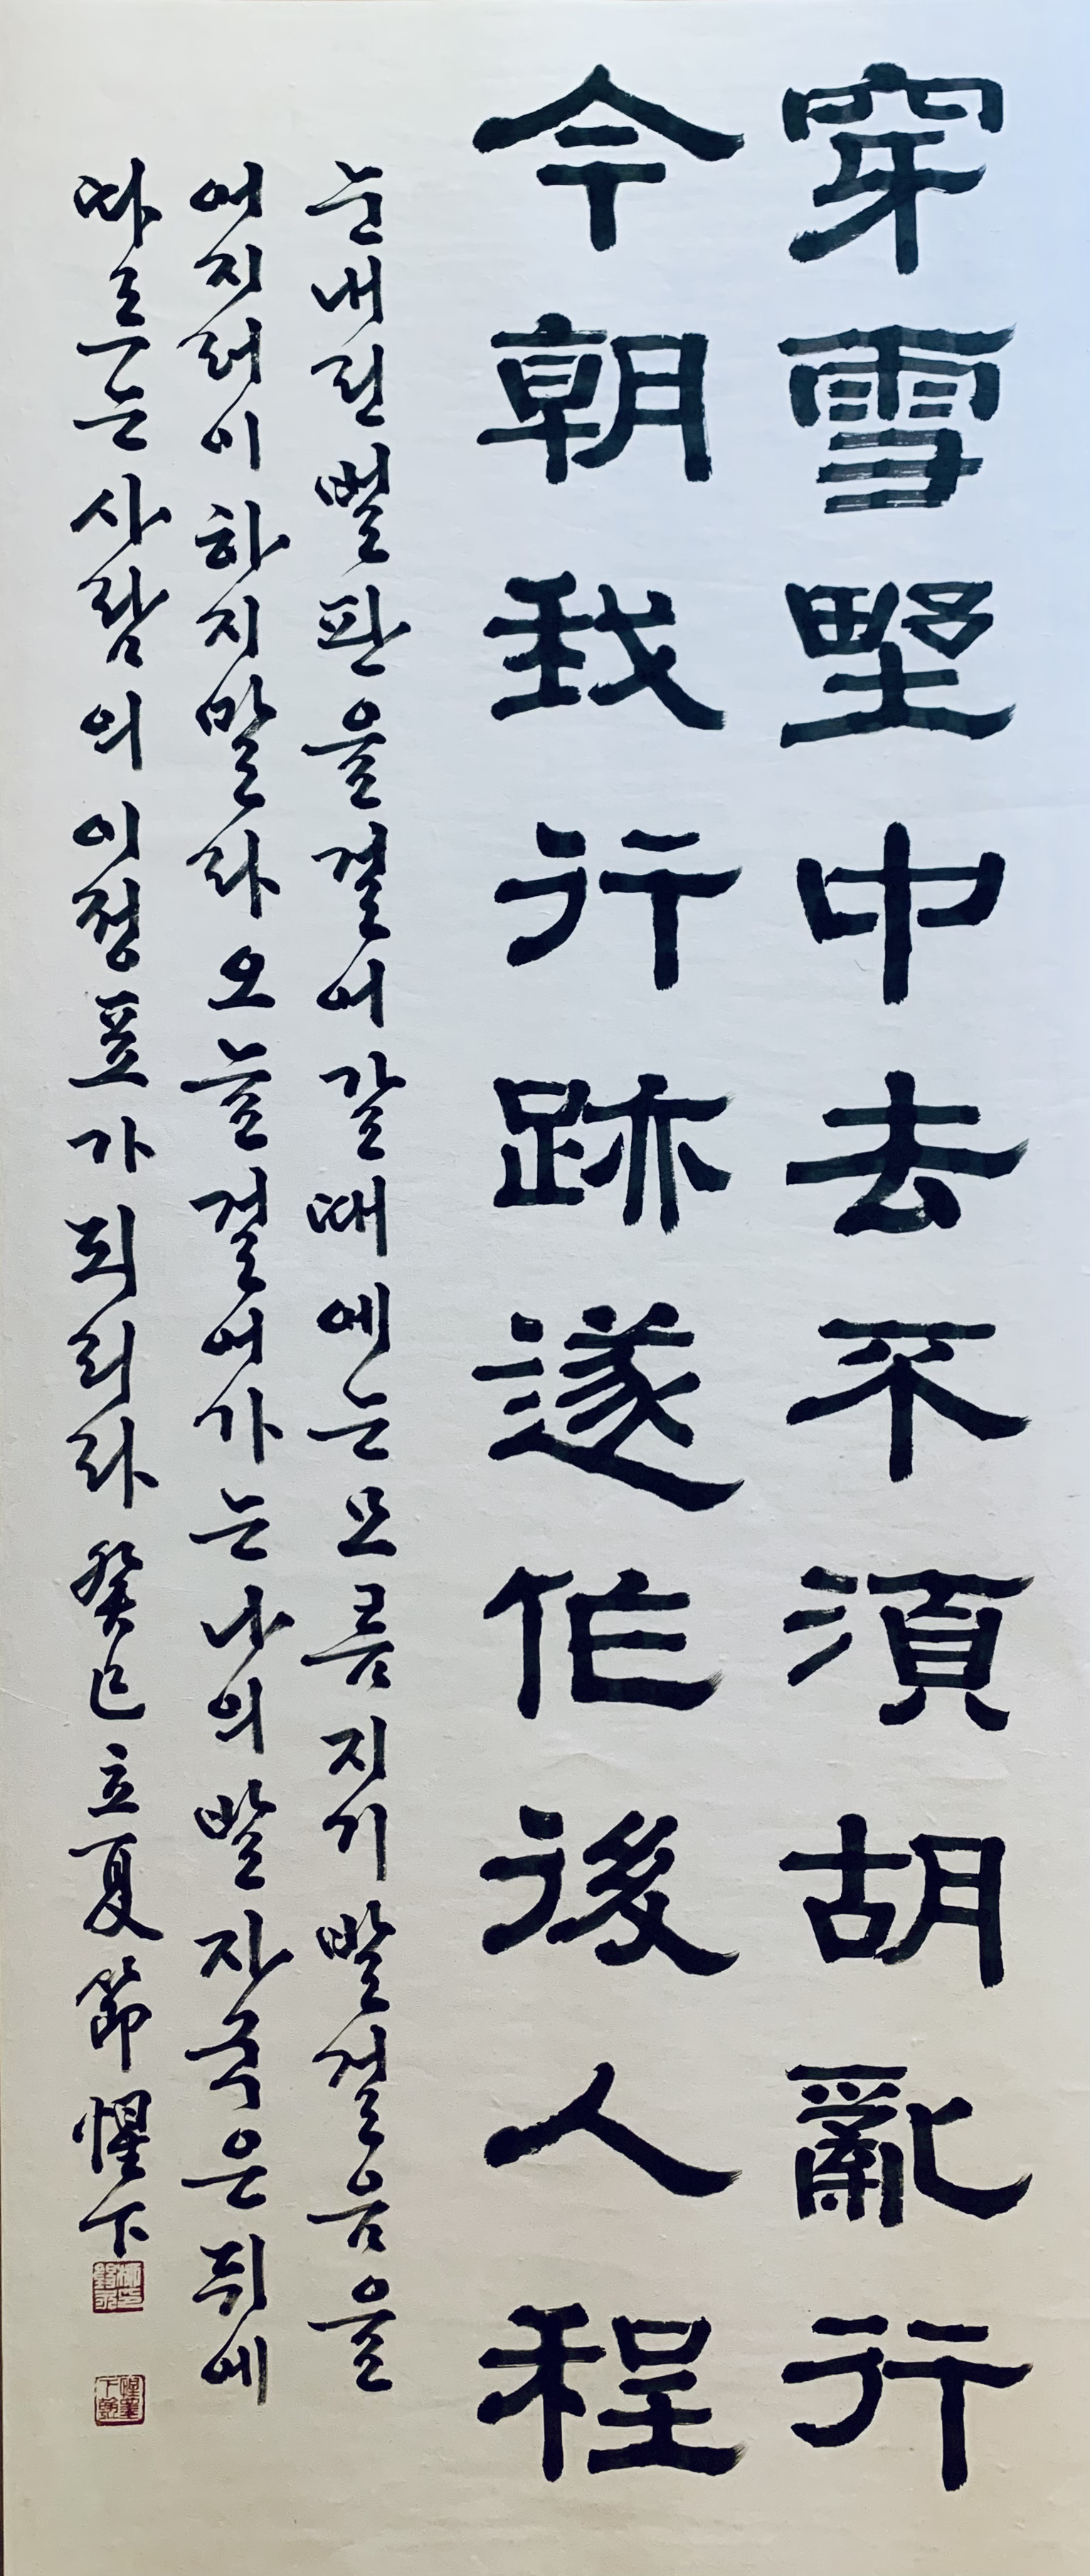 穿雪野中去不須胡亂行
今朝我行跡遂作後人程
눈내린벌판을걸어갈때에는모름지기발걸음을
어지러이하지말라오늘걸어가는나의발자국은뒤에
따르는사람의이정표가되리라 癸巳立夏節 惺下